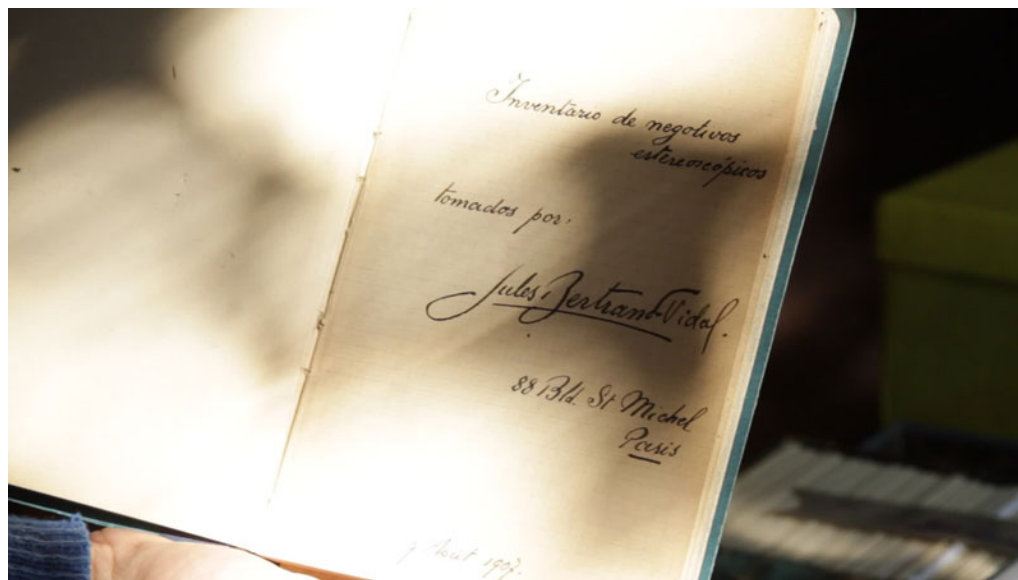 Inventario de negativos
estereoscópicos
tomados por:
Jules Bertrand-Vidal.
88 Bld. St Michel
Paris
Aout 1907.